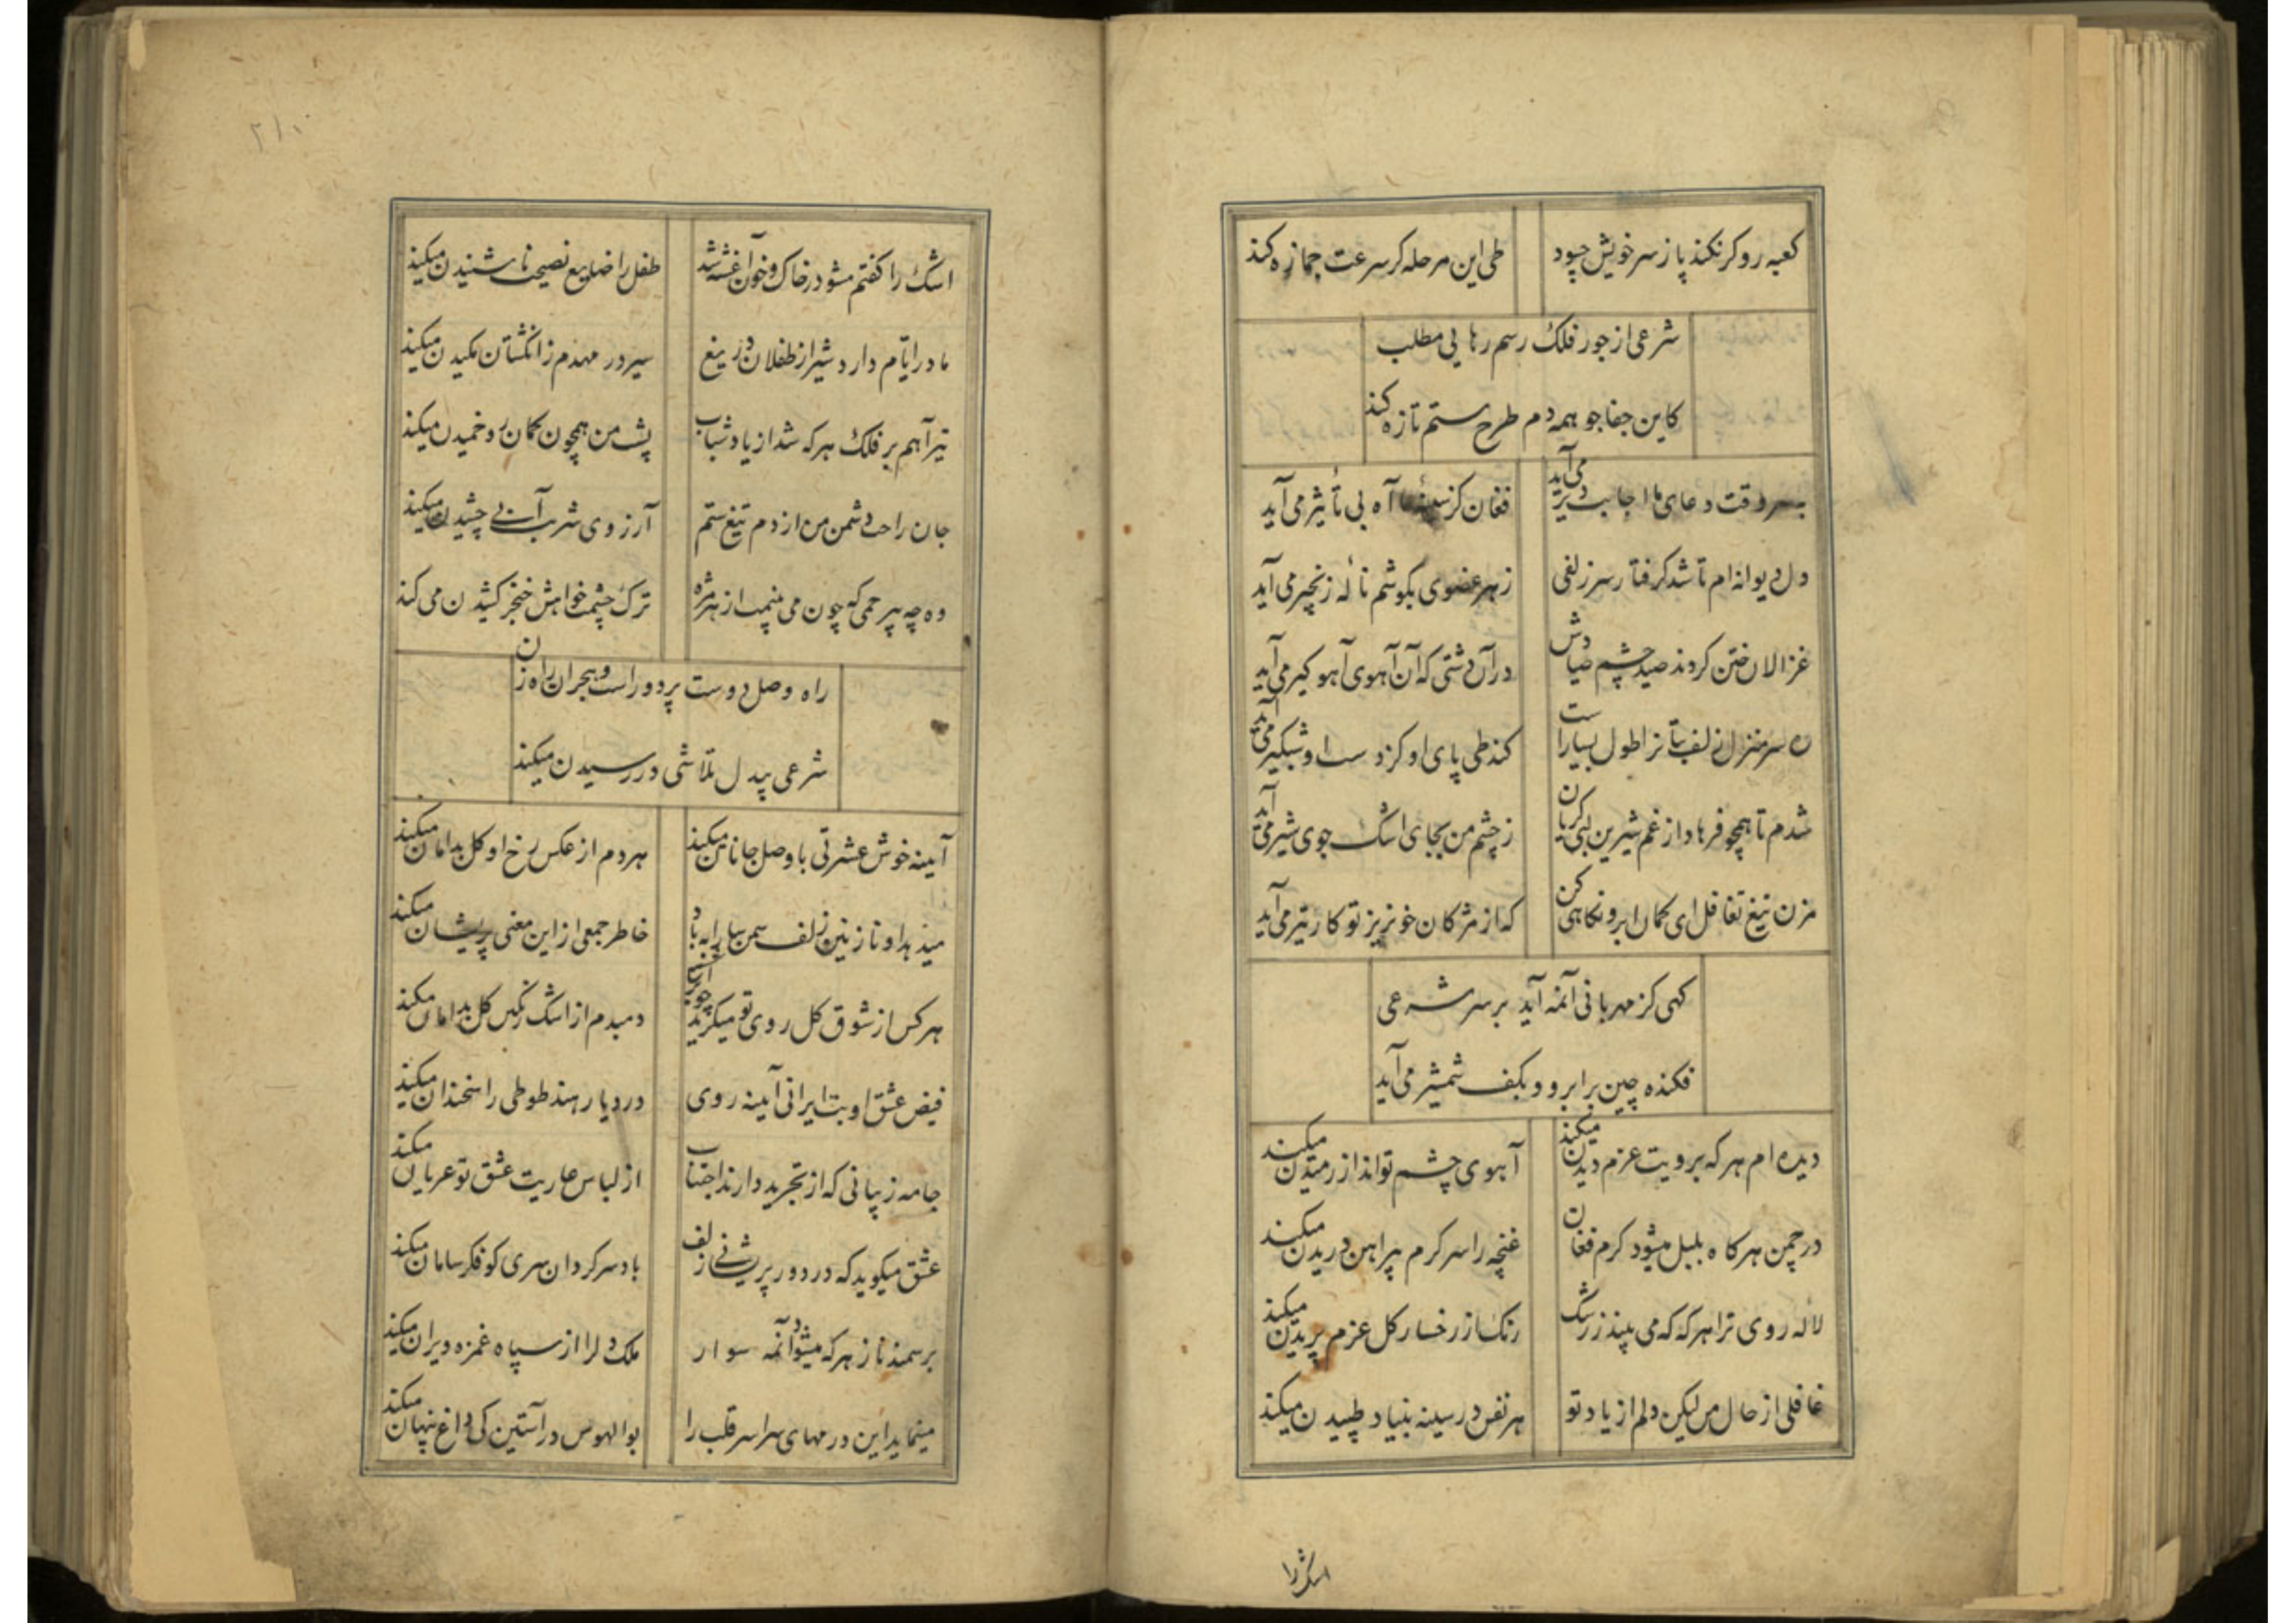 کعبه رو کر نکند پا ز سر خویش چه سود
طی این مرحله کر سرعت جمازه کند
شرعی از جور فلک رسم رهایی مطلب
کاین جفاجو همه دم طرح ستم تازه کند
بسر وقت دعای ما اجابت دیر می آید
فغان کز سینهٔ ما آه بی تأثیر می آید
دل دیوانه ام تا شد کرفتار سر زلفی
ز هر عضوی بگوشم نالهٔ زنجیر می آید
غزالان ختن کردند صید چشم صیادش
در آن دشتی که آن آهوی آهو کیر می آید
سر منزل زلف بتانرا طول بسیارست
کند طی پای او کز دست او شبکیر می آید
شدم تا همچو فرهاد از غم شیرین لبی کریان
ز چشم من بجای اشک جوی شیر می آید
مزن تیغ تغافل ای کمان ابرو نکاهی کن
که از مژکان خونریز تو کار تیر می آید
کهی کز مهربانی آنمه آید بر سر شرعی
فکنده چین برابرو و بکف شمشیر می آید
دیده ام هر که برویت عزم دیدن میکند
آهوی چشم تو انداز رمیدن میکند
در چمن هر کاه بلبل میشود کرم فغان
غنچه را سر کرم پیراهن دریدن میکند
لاله روی ترا هر که که می بیند ز رشک
رنک از رخسار کل عزم پریدن میکند
غافلی از حال من لیکن دلم از یاد تو
هر نفس در سینه بنیاد طپیدن میکند
اشک را
۲۱۰
اشک را کفتم مشو در خاک و خون آغشته شد
طفل را ضایع نصیحت ناشنیدن میکند
مادر ایام دارد شیر از طفلان دریغ
سیر در مهدم ز انکشتان مکیدن میکند
تیر آهم بر فلک هر که شد از یاد شباب
پشت من همچون کمان رو خمیدن میکند
جان راحت دشمن من از دم تیغ ستم
آرزوی شربت آبی چشیدن میکند
وه چه بیرحمی که چون می بینمت از هر مژه
ترک چشمت خواهش خنجر کشیدن می کند
راه وصل دوست پر دور است و هجران راه زن
شرعی بیدل تلاشی در رسیدن میکند
آینه خوش عشرتی با وصل جانان میکند
هر دم از عکس رخ او کل بدامان میکند
میدهد او نازنین زلف سمن سا را به باد
خاطر جمعی از این معنی پریشان میکند
هر کس از شوق کل روی تو میکرید چو ابر
دمبدم از اشک رنکین کل بدامان میکند
فیض عشق او بت ایرانی آینه روی
در دیار هند طوطی را سخندان میکند
جامه زیبانی که از تجرید دارند اجتناب
از لباس عاریت عشق تو عریان میکند
عشق میکوید که در دور پریشانی زلف
باد سرکردان سری کو فکر سامان میکند
بر سمند ناز هر که میشود آنمه سوار
ملک دلرا از سپاه غمزه ویران میکند
مینماید این درمهای سراسر قلب را
بوالهوس در آستین کی داغ پنهان میکند